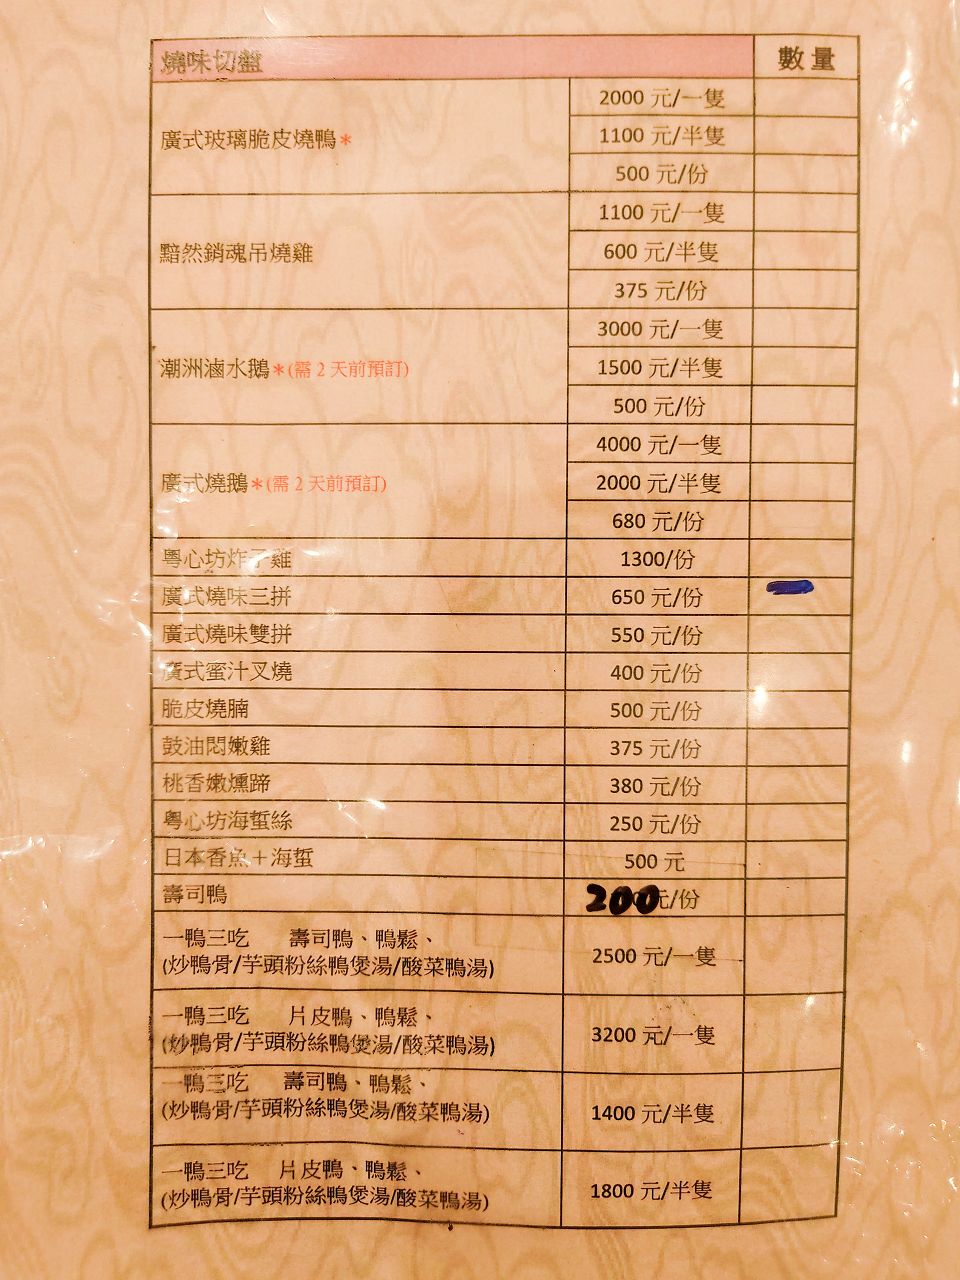 燒味切盤 數量
廣式玻璃脆皮燒鴨* 2000 元/一隻
1100 元/半隻
500 元/份
黯然銷魂吊燒雞 1100 元/一隻
600 元/半隻
375 元/份
潮洲滷水鵝*(需 2 天前預訂) 3000 元/一隻
1500 元/半隻
500 元/份
廣式燒鵝*(需 2 天前預訂) 4000 元/一隻
2000 元/半隻
680 元/份
粵心坊炸子雞 1300/份
廣式燒味三拼 650 元/份
廣式燒味雙拼 550 元/份
廣式蜜汁叉燒 400 元/份
脆皮燒腩 500 元/份
鼓油悶嫩雞 375 元/份
桃香嫩燻蹄 380 元/份
粵心坊海蜇絲 250 元/份
日本香魚+海蜇 500 元
壽司鴨 200元/份
一鴨三吃 壽司鴨、鴨鬆、
(炒鴨骨/芋頭粉絲鴨煲湯/酸菜鴨湯) 2500 元/一隻
一鴨三吃 片皮鴨、鴨鬆、
(炒鴨骨/芋頭粉絲鴨煲湯/酸菜鴨湯) 3200 元/一隻
一鴨三吃 壽司鴨、鴨鬆、
(炒鴨骨/芋頭粉絲鴨煲湯/酸菜鴨湯) 1400 元/半隻
一鴨三吃 片皮鴨、鴨鬆、
(炒鴨骨/芋頭粉絲鴨煲湯/酸菜鴨湯) 1800 元/半隻